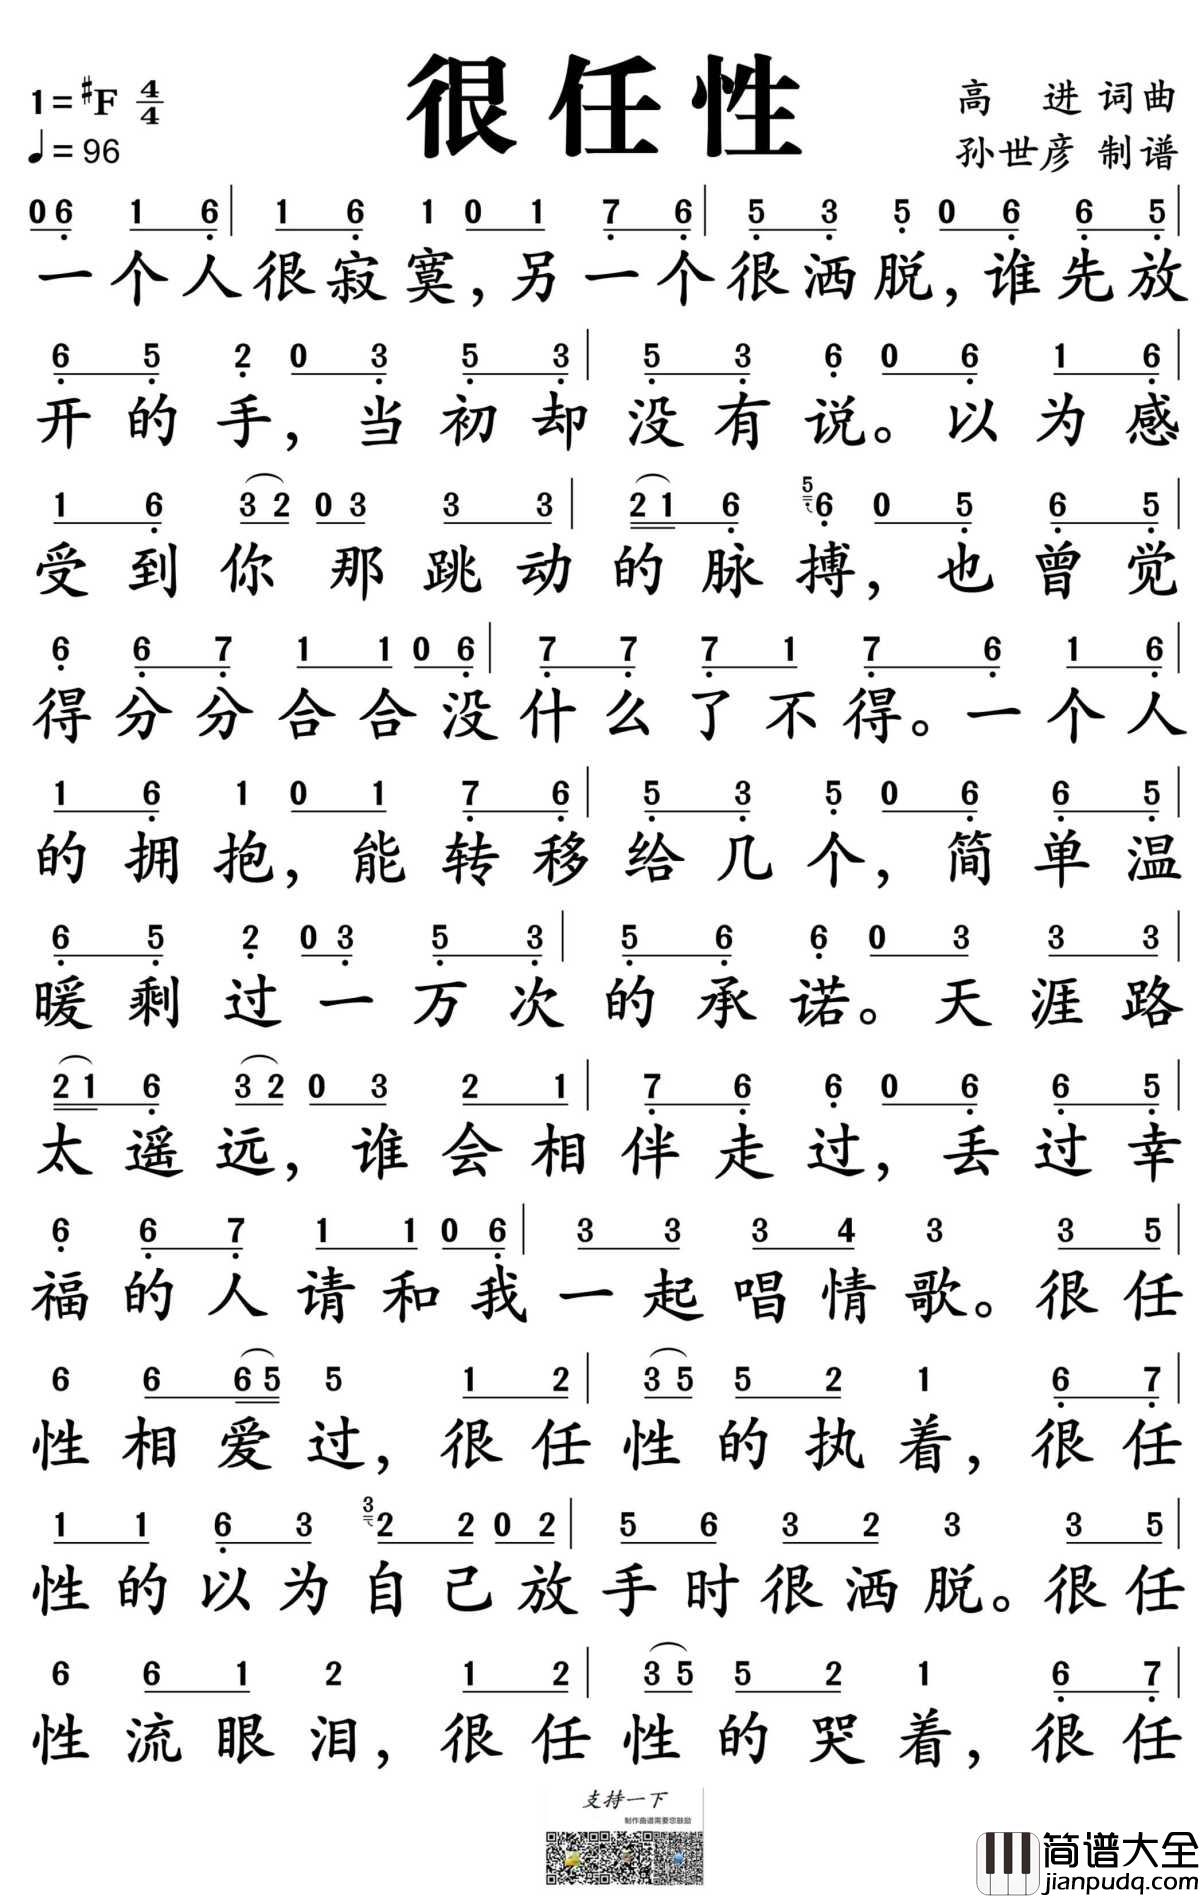 很任性
1=♯F 4/4
♩=96
高 进 词曲
孙世彦 制谱
06 1 6| 1 6 1 0 1 7 6| 5 3 5 0 6 6 5|
一个人很寂寞,另一个很洒脱,谁先放
6 5 2 0 3 5 3| 5 3 6 0 6 1 6|
开的手,当初却没有说。以为感
1 6 3 2 0 3 3 3| 2 1 6 5 6 0 5 6 5|
受到你那跳动的脉搏,也曾觉
6 6 7 1 1 0 6| 7 7 7 1 7 6 1 6|
得分分合合没什么了不得。一个人
1 6 1 0 1 7 6| 5 3 5 0 6 6 5|
的拥抱,能转移给几个,简单温
6 5 2 0 3 5 3| 5 6 6 0 3 3 3|
暖剩过一万次的承诺。天涯路
2 1 6 3 2 0 3 2 1| 7 6 6 0 6 6 5|
太遥远,谁会相伴走过,丢过幸
6 6 7 1 1 0 6| 3 3 3 4 3 3 5|
福的人请和我一起唱情歌。很任
6 6 6 5 5 1 2| 3 5 5 2 1 6 7|
性相爱过,很任性的执着,很任
1 1 6 3 3 2 2 0 2| 5 6 3 2 3 3 5|
性的以为自己放手时很洒脱。很任
6 6 1 2 1 2| 3 5 5 2 1 6 7|
性流眼泪,很任性的哭着,很任
支持一下
制作曲谱需要您鼓励
简谱大全
jianpudq.com